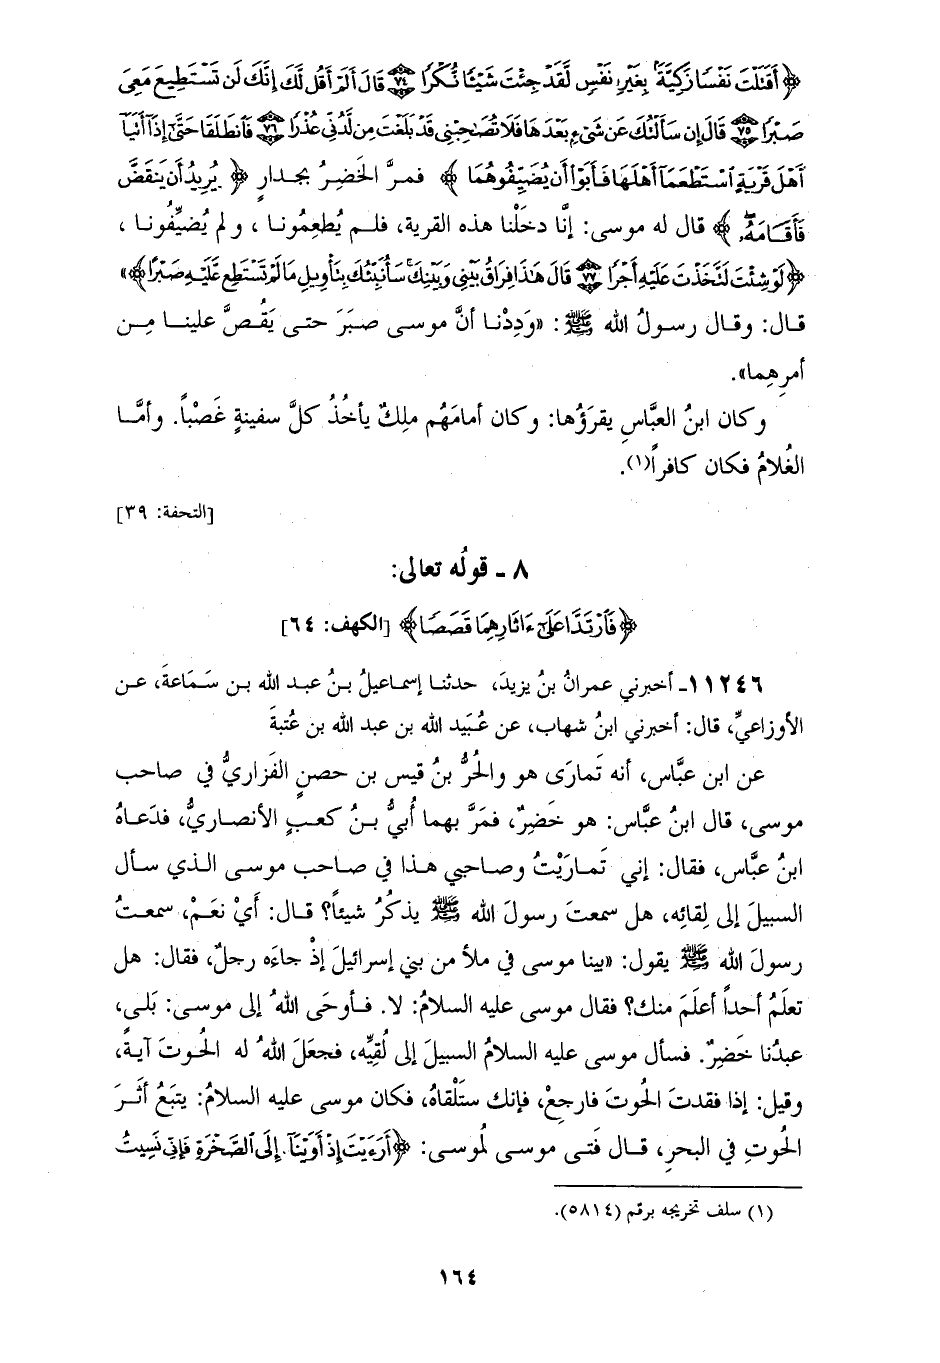 ﴿أَقَتَلْتَ نَفْسًا زَكِيَّةً بِغَيْرِ نَفْسٍ لَّقَدْ جِئْتَ شَيْئًا نُّكْرًا ۝٧٤ قَالَ أَلَمْ أَقُل لَّكَ إِنَّكَ لَن تَسْتَطِيعَ مَعِيَ
صَبْرًا ۝٧٥ قَالَ إِن سَأَلْتُكَ عَن شَيْءٍ بَعْدَهَا فَلَا تُصَاحِبْنِي قَدْ بَلَغْتَ مِن لَّدُنِّي عُذْرًا ۝٧٦ فَانطَلَقَا حَتَّى إِذَا أَتَيَا
أَهْلَ قَرْيَةٍ اسْتَطْعَمَا أَهْلَهَا فَأَبَوْا أَن يُضَيِّفُوهُمَا﴾ فمرَّ الخَضِرُ بجدارٍ ﴿يُرِيدُ أَن يَنقَضَّ
فَأَقَامَهُ﴾ قال له موسى: إنَّا دخَلْنا هذه القرية، فلم يُطعِمُونا، ولم يُضيِّفُونا،
﴿لَوْ شِئْتَ لَتَّخَذْتَ عَلَيْهِ أَجْرًا ۝٧٧ قَالَ هَذَا فِرَاقُ بَيْنِي وَبَيْنِكَ سَأُنَبِّئُكَ بِتَأْوِيلِ مَا لَمْ تَسْتَطِع عَّلَيْهِ صَبْرًا﴾»
قال: وقال رسولُ الله ﷺ: «وَدِدْنا أنَّ موسى صبَرَ حتى يَقُصَّ علينا مِن
أمرِهِما».
وكان ابنُ العبَّاسِ يقرَؤُها: وكان أمامَهُم ملِكٌ يأخُذُ كلَّ سفينةٍ غَصْباً. وأمَّا
الغُلامُ فكان كافراً(١).
[التحفة: ٣٩]
٨ - قولُه تعالى:
﴿فَارْتَدَّا عَلَى ءَاثَارِهِمَا قَصَصًا﴾ [الكهف: ٦٤]
١١٢٤٦ـ أخبرني عمرانُ بنُ يزيدَ، حدثنا إسماعيلُ بنُ عبد الله بن سَمَاعةَ، عن
الأوزاعيِّ، قال: أخبرني ابنُ شهاب، عن عُبَيد الله بن عبد الله بن عُتبةَ
عن ابن عبَّاس، أنه تَمارَى هو والحُرُّ بنُ قيس بن حصنٍ الفَزاريُّ في صاحب
موسى، قال ابنُ عبَّاس: هو خَضِرٌ، فمَرَّ بهما أُبيُّ بنُ كعبٍ الأنصاريُّ، فدَعاهُ
ابنُ عبَّاس، فقال: إني تَمارَيْتُ وصاحبي هذا في صاحب موسى الذي سأل
السبيلَ إلى لِقائِه، هل سمعتَ رسولَ الله ﷺ يذكُرُ شيئاً؟ قال: أَيْ نعَمْ، سمعتُ
رسولَ الله ﷺ يقول: «بينا موسى في ملأ من بني إسرائيلَ إذْ جاءَه رجلٌ، فقال: هل
تعلَمُ أحداً أعلَمَ منك؟ فقال موسى عليه السلامُ: لا. فأوحَى اللهُ إلى موسى: بَلى،
عبدُنا خَضِرٌ. فسأل موسى عليه السلامُ السبيلَ إلى لُقِيِّه، فجعَلَ اللهُ له الحُوتَ آيةً،
وقيل: إذا فقدتَ الحُوتَ فارجِعْ، فإنك ستَلْقاهُ، فكان موسى عليه السلامُ: يتبَعُ أثَرَ
الحُوتِ في البحرِ، قال فَتى موسى لمُوسى: ﴿أَرَءَيْتَ إِذْ أَوَيْنَا إِلَى الصَّخْرَةِ فَإِنِّي نَسِيتُ
(١) سلف تخريجه برقم (٥٨١٤).
١٦٤